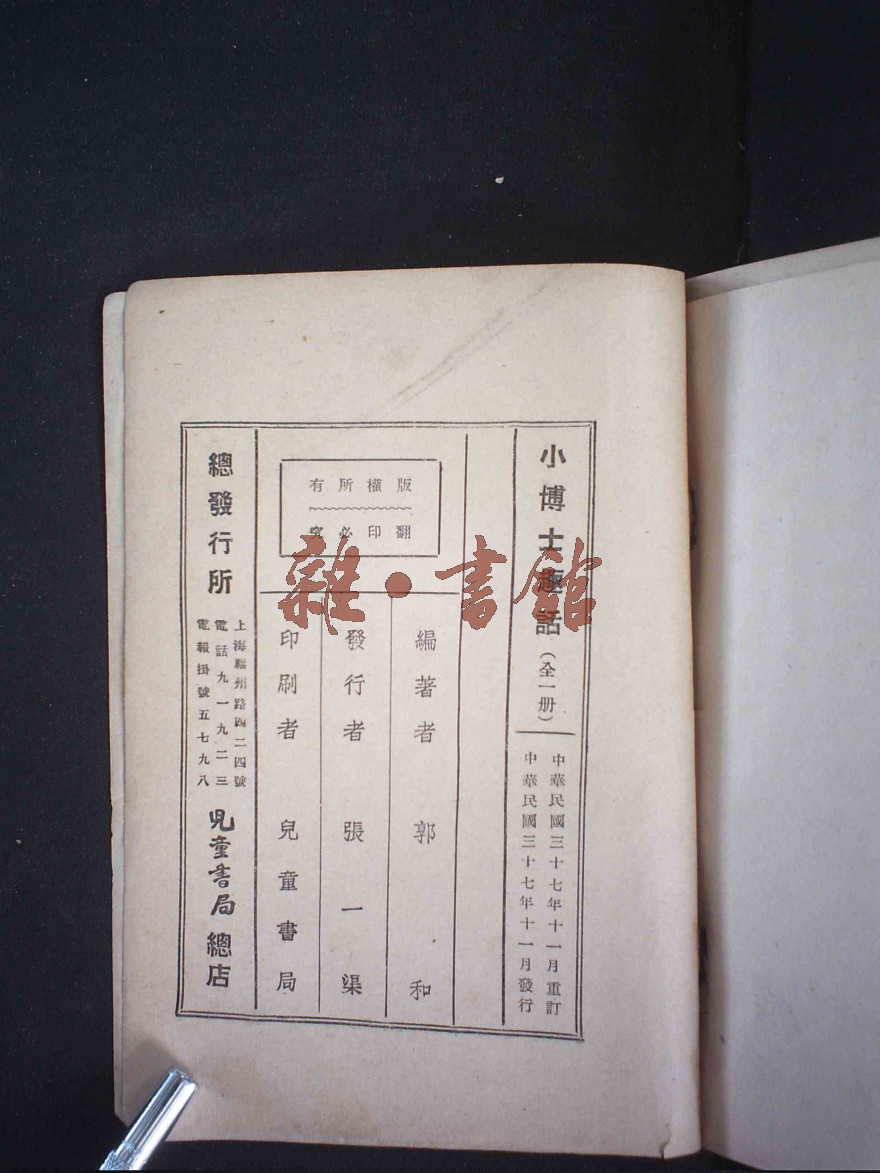 小博士趣話（全一册）
中華民國三十七年十一月重訂
中華民國三十七年十一月發行
版權所有
翻印必究
編著者 郭 和
發行者 張一渠
印刷者 兒童書局
總發行所
上海福州路四二四號
電話九一九二三
電報掛號五七九八
兒童書局總店
雜·書館